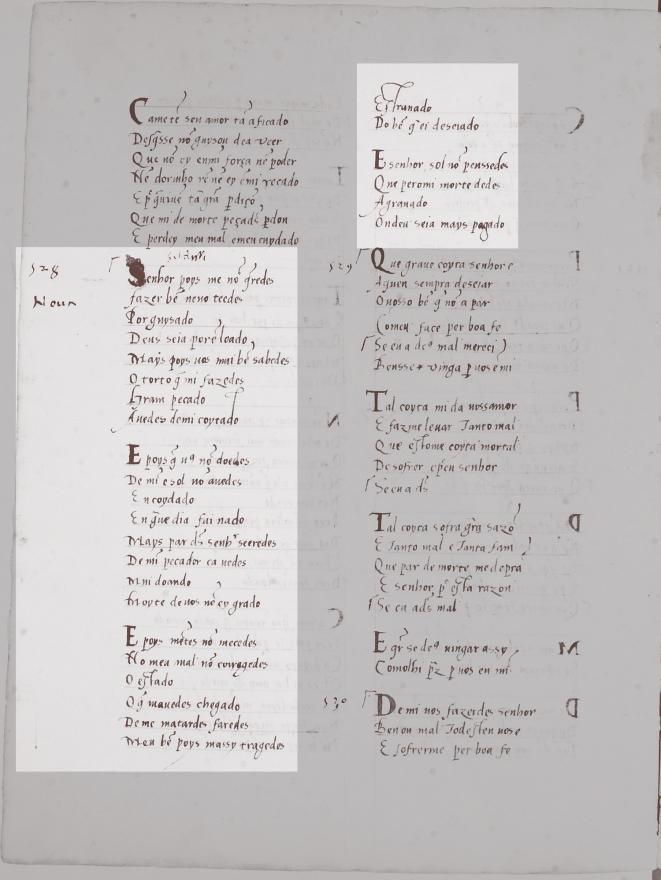 Camete seu amor tā aficado
Desq̄sse nō guysou d'a veer
Que nō ey en mi força nē poder
Nē dormho rē nē ey ē mi recado
E p̄ q̄ viuē tā grā p̄diçō
Que mi de morte peçadē p̄don
E perdey meu mal e meu cuydado
528
Nova
Senhor poys me nō q̄redes
fazer bē neno teedes
Por guysado
Deus seia porē loado
Mays poys uos mui bē sabedes
O torto q̄ mi fazedes
Gram pecado
Auedes de mi coytado
E poys q̄ uꝰ nō doedes
De mi e sol nō auedes
En coydado
En q̄ue dia fui nado
Mays par ds̄ senhꝰ seeredes
De mi pecador ca uedes
Mui doando
Moyte de uos nō ey grado
E poys mētes nō metedes
No meu mal nō corregedes
O estado
O q̄ mauedes chegado
De me matardes faredes
Meu bē poys massy tragedes
Estranado
Do bē q̄ ei deseiado
E senhor sol nō penssedes
Que pero mi morte dedes
Agrauado
Onden seia mays pagado
529
Que graue coyta senhor e
Aquen sempra deseiar
O uosso bē q̄ nō a par
Comeu face per boa fe
Se eu a deꝰ mal mereci
Bensse vinga p uos e mi
Tal coyta mi da uossamor
E faz me leuar tanto mal
Que estome coyta mortal
De sofrer e pēu senhor
Se eu a ds̄
Tal coyta sofra grā sazō
E tanto mal e tanta fam
Que par de morte me depra
E senhor p̄ esta razon
Se eu a ds̄ mal
E q̄r se deꝰ uingar assy
Como lhi p̄z p uos en mi
530
De mi uos fazerdes senhor
Ben ou mal tod esten uos e
E sofrerme per boa fe